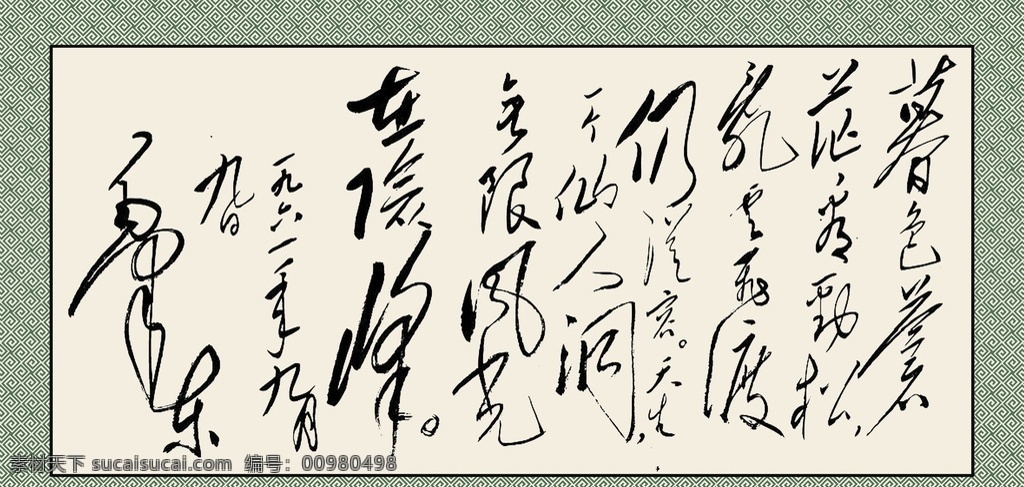 暮色蒼
茫看勁松，
亂云飛渡
仍從容。天生
一个仙人洞，
无限風光
在險峰。
一九六一年九月
九日
毛泽东
素材天下 sucaisucai.com 编号：00980498